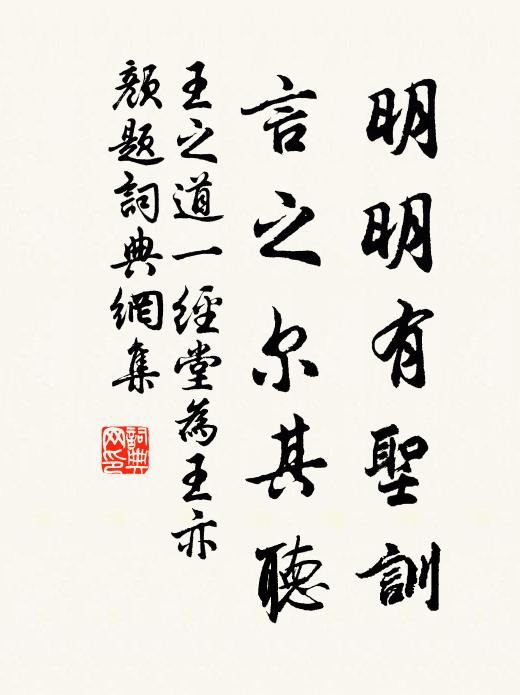 明明有聖訓
言之尔其聽
王之道一經堂為王亦
顏題詞典網集
詞典
网印